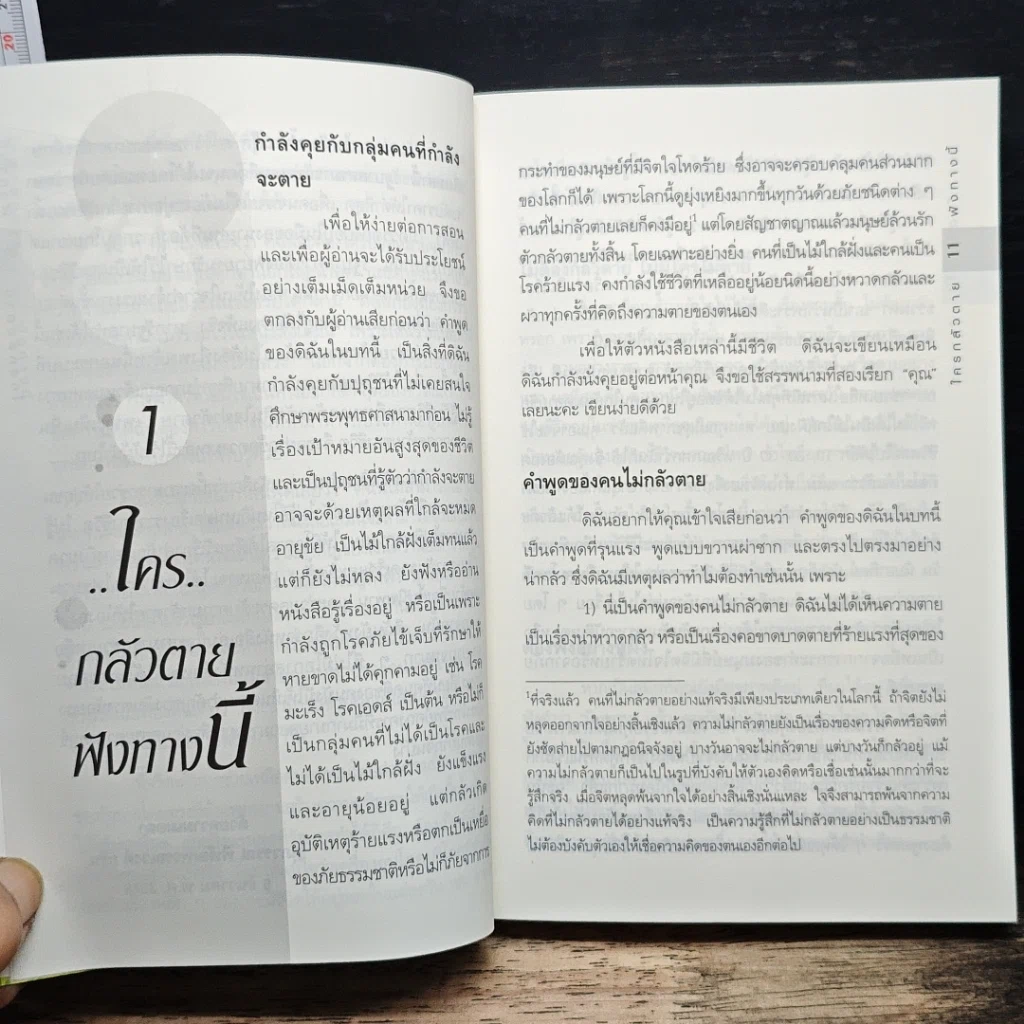 20
1
..ใคร..
กลัวตาย
ฟังทางนี้
กำลังคุยกับกลุ่มคนที่กำลัง
จะตาย
เพื่อให้ง่ายต่อการสอน
และเพื่อผู้อ่านจะได้รับประโยชน์
อย่างเต็มเม็ดเต็มหน่วย จึงขอ
ตกลงกับผู้อ่านเสียก่อนว่า คำพูด
ของดิฉันในบทนี้ เป็นสิ่งที่ดิฉัน
กำลังคุยกับปุถุชนที่ไม่เคยสนใจ
ศึกษาพระพุทธศาสนามาก่อน ไม่รู้
เรื่องเป้าหมายอันสูงสุดของชีวิต
และเป็นปุถุชนที่รู้ตัวว่ากำลังจะตาย
อาจจะด้วยเหตุผลที่ใกล้จะหมด
อายุขัย เป็นไม้ใกล้ฝั่งเต็มทนแล้ว
แต่ก็ยังไม่หลง ยังฟังหรืออ่าน
หนังสือรู้เรื่องอยู่ หรือเป็นเพราะ
กำลังถูกโรคภัยไข้เจ็บที่รักษาให้
หายขาดไม่ได้คุกคามอยู่ เช่น โรค
มะเร็ง โรคเอดส์ เป็นต้น หรือไม่ก็
เป็นกลุ่มคนที่ไม่ได้เป็นโรคและ
ไม่ได้เป็นไม้ใกล้ฝั่ง ยังแข็งแรง
และอายุน้อยอยู่ แต่กลัวเกิด
อุบัติเหตุร้ายแรงหรือตกเป็นเหยื่อ
ของภัยธรรมชาติหรือไม่ก็ภัยจากการ
กระทำของมนุษย์ที่มีจิตใจโหดร้าย ซึ่งอาจจะครอบคลุมคนส่วนมาก
ของโลกก็ได้ เพราะโลกนี้ดูยุ่งเหยิงมากขึ้นทุกวันด้วยภัยชนิดต่าง ๆ
คนที่ไม่กลัวตายเลยก็คงมีอยู่¹ แต่โดยสัญชาตญาณแล้วมนุษย์ล้วนรัก
ตัวกลัวตายทั้งสิ้น โดยเฉพาะอย่างยิ่ง คนที่เป็นไม้ใกล้ฝั่งและคนเป็น
โรคร้ายแรง คงกำลังใช้ชีวิตที่เหลืออยู่น้อยนิดนี้อย่างหวาดกลัวและ
ผวาทุกครั้งที่คิดถึงความตายของตนเอง
เพื่อให้ตัวหนังสือเหล่านี้มีชีวิต ดิฉันจะเขียนเหมือน
ดิฉันกำลังนั่งคุยอยู่ต่อหน้าคุณ จึงขอใช้สรรพนามที่สองเรียก “คุณ”
เลยนะคะ เขียนง่ายดีด้วย
คำพูดของคนไม่กลัวตาย
ดิฉันอยากให้คุณเข้าใจเสียก่อนว่า คำพูดของดิฉันในบทนี้
เป็นคำพูดที่รุนแรง พูดแบบขวานผ่าซาก และตรงไปตรงมาอย่าง
น่ากลัว ซึ่งดิฉันมีเหตุผลว่าทำไมต้องทำเช่นนั้น เพราะ
1) นี่เป็นคำพูดของคนไม่กลัวตาย ดิฉันไม่ได้เห็นความตาย
เป็นเรื่องน่าหวาดกลัว หรือเป็นเรื่องคอขาดบาดตายที่ร้ายแรงที่สุดของ
¹ที่จริงแล้ว คนที่ไม่กลัวตายอย่างแท้จริงมีเพียงประเภทเดียวในโลกนี้ ถ้าจิตยังไม่
หลุดออกจากใจอย่างสิ้นเชิงแล้ว ความไม่กลัวตายยังเป็นเรื่องของความคิดหรือจิตที่
ยังซัดส่ายไปตามกฎอนิจจังอยู่ บางวันอาจจะไม่กลัวตาย แต่บางวันก็กลัวอยู่ แม้
ความไม่กลัวตายก็เป็นไปในรูปที่บังคับให้ตัวเองคิดหรือเชื่อเช่นนั้นมากกว่าที่จะ
รู้สึกจริง เมื่อจิตหลุดพ้นจากใจได้อย่างสิ้นเชิงนั่นแหละ ใจจึงสามารถพ้นจากความ
คิดที่ไม่กลัวตายได้อย่างแท้จริง เป็นความรู้สึกที่ไม่กลัวตายอย่างเป็นธรรมชาติ
ไม่ต้องบังคับตัวเองให้เชื่อความคิดของตนเองอีกต่อไป
ใครกลัวตาย 11 ฟังทางนี้